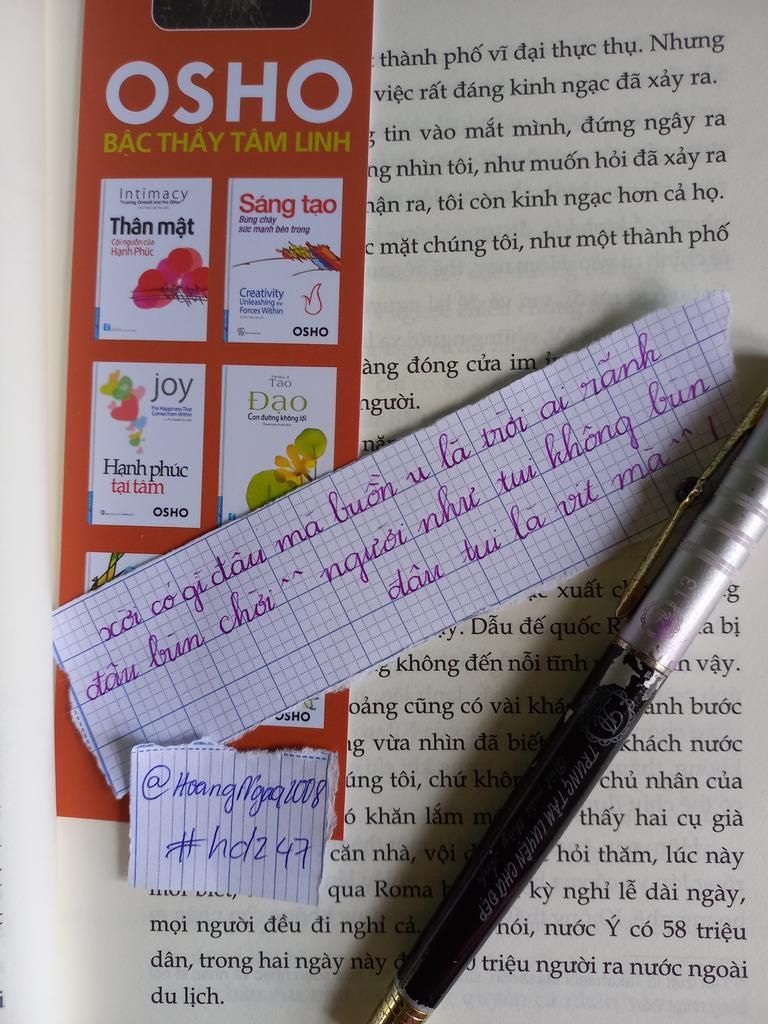 OSHO
BẬC THẦY TÂM LINH
Intimacy
Trusting Oneself and the Other
Thân mật
Cội nguồn của
Hạnh Phúc
Sáng tạo
Bừng cháy
sức mạnh bên trong
Creativity
Unleashing the
Forces Within
OSHO
joy
The Happiness That
Comes from Within
Hạnh phúc
tại tâm
OSHO
Tao
Đạo
Con đường không lối
OSHO
thành phố vĩ đại thực thụ. Nhưng
việc rất đáng kinh ngạc đã xảy ra.
tin vào mắt mình, đứng ngây ra
nhìn tôi, như muốn hỏi đã xảy ra
ra, tôi còn kinh ngạc hơn cả họ.
mặt chúng tôi, như một thành phố
đóng cửa im
người.
xời có gì đâu mà buồn u là trời ai rãnh
đâu bùn chời^^ người như tui không bun
đâu tui là vit mà^^!
xuất
Dẫu đế quốc bị
không đến nỗi tĩnh vậy.
cũng có vài bước
vừa nhìn đã biết khách nước
chúng tôi, chứ chủ nhân của
khăn lắm thấy hai cụ già
căn nhà, vội hỏi thăm, lúc này
qua Roma kỳ nghỉ lễ dài ngày,
mọi người đều đi nghỉ cả. nói, nước Ý có 58 triệu
dân, trong hai ngày này triệu người ra nước ngoài
du lịch.
@HoangNgoq2008
#hd247
TRUNG TÂM LUYỆN CHỮ ĐẸP